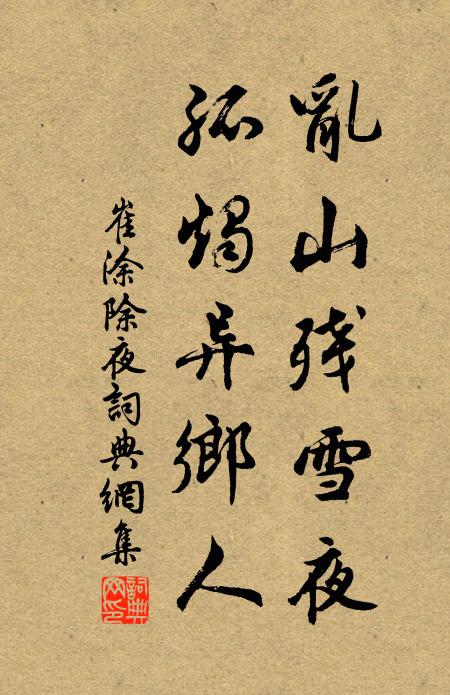 亂山残雪夜
孤燭异鄉人
崔涂除夜詞典網集
詞典網印